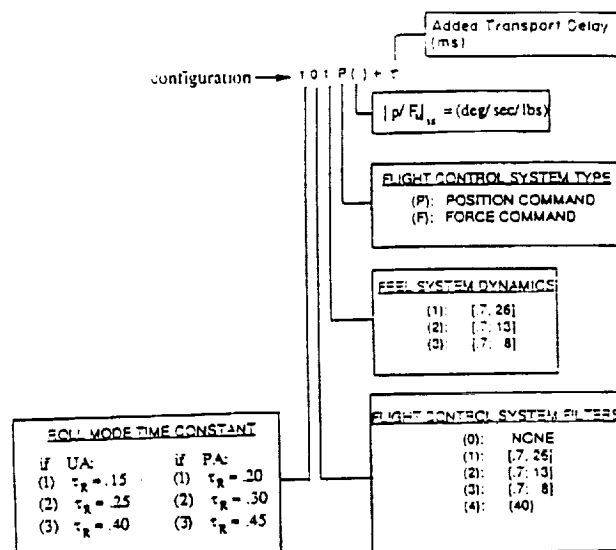 Added Transport Delay
(ms)
configuration → 1 0 1 P ( ) + τ
| p / Fₐₛ |ₛₛ = (deg/sec/lbs)
FLIGHT CONTROL SYSTEM TYPE
(P): POSITION COMMAND
(F): FORCE COMMAND
FEEL SYSTEM DYNAMICS
(1): [.7; 26]
(2): [.7; 13]
(3): [.7; 8]
FLIGHT CONTROL SYSTEM FILTERS
(0): NONE
(1): [.7; 26]
(2): [.7; 13]
(3): [.7; 8]
(4): (40)
ROLL MODE TIME CONSTANT
if UA: if PA:
(1) τR = .15 (1) τR = .20
(2) τR = .25 (2) τR = .30
(3) τR = .40 (3) τR = .45